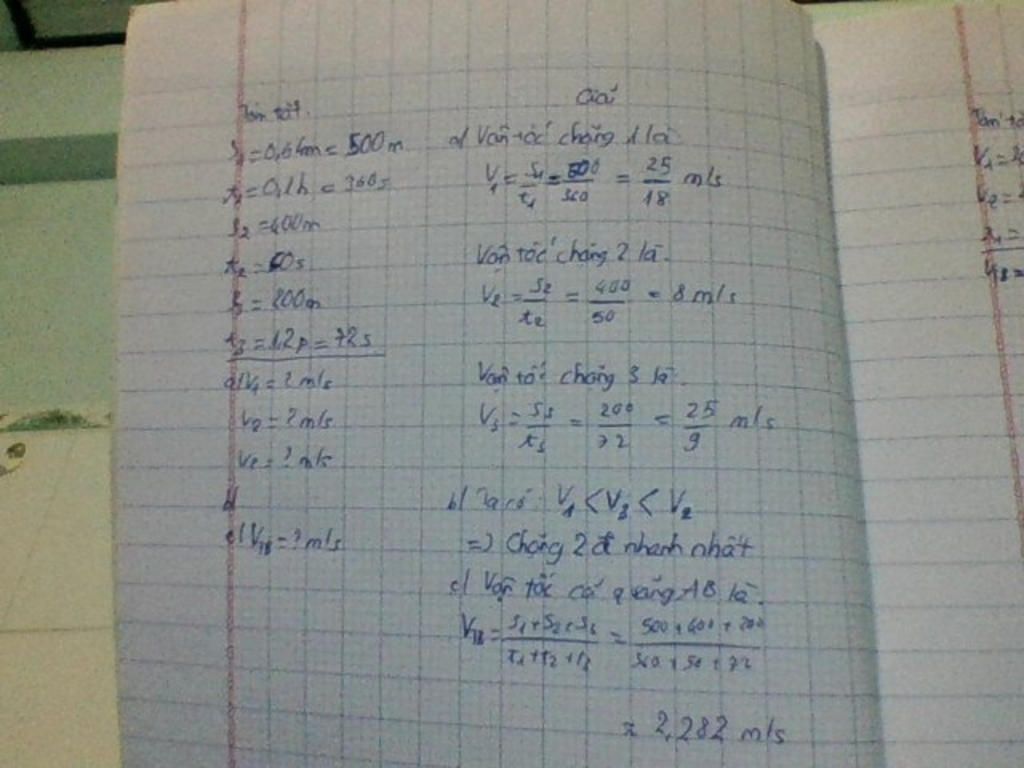 Tóm tắt.
S₁ = 0,5km = 500m
t₁ = 0,1h = 360s
S₂ = 400m
t₂ = 50s
S₃ = 200m
t₃ = 1,2p = 72s
a) V₁ = ? m/s
V₂ = ? m/s
V₃ = ? m/s
b)
c) Vtb = ? m/s
Giải
a) Vận tốc chặng 1 là
V₁ = S₁/t₁ = 500/360 = 25/18 m/s
Vận tốc chặng 2 là.
V₂ = S₂/t₂ = 400/50 = 8 m/s
Vận tốc chặng 3 là.
V₃ = S₃/t₃ = 200/72 = 25/9 m/s
b) Ta có: V₁ < V₃ < V₂
=> Chặng 2 đi nhanh nhất
c) Vận tốc cả quãng AB là.
Vtb = S₁+S₂+S₃/t₁+t₂+t₃ = 500+400+200/360+50+72
≈ 2,282 m/s
Tóm tắ
V₁ =
V₂ =
Vtb =